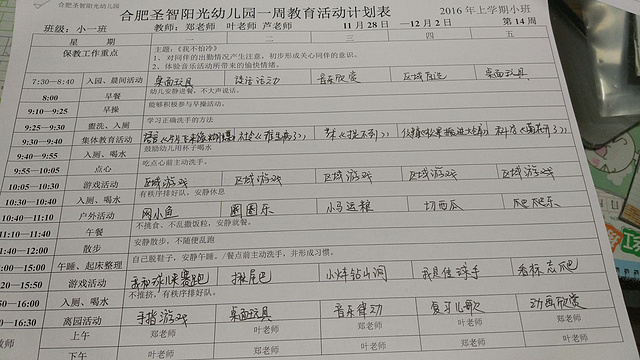 合肥圣智阳光幼儿园
合肥圣智阳光幼儿园一周教育活动计划表
班级：小一班 教师：郑老师 叶老师 芦老师 11月28日—12月2日 2016年上学期小班 第14周
星期 一 二 三 四 五
保教工作重点 主题：《我不怕冷》
1、对同伴的出勤情况产生注意，初步形成关心同伴的意识。
2、体验音乐活动所带来的愉快情绪。
7:30—8:40 入园、晨间活动 桌面玩具 谈话活动 音乐欣赏 区域自选 桌面玩具
8:00 早餐 幼儿安静进餐，不大声说话。
9:10—9:25 早操 能够积极参与早操活动。
9:25—9:30 盥洗、入厕 学习正确洗手的方法
9:30—9:40 集体教育活动
9:40—9:55 入厕、喝水 鼓励幼儿用杯子喝水
9:55—10:05 点心 吃点心前主动洗手。
10:05—10:30 游戏活动 区域游戏 区域游戏 区域游戏 区域游戏 区域游戏
10:30—10:40 入厕、喝水 有秩序排好队，安静休息
10:40—11:10 户外活动 网小鱼 圈圈乐 小马运粮 切西瓜 爬爬乐
11:10—11:40 午餐 不挑食、不乱撒饭粒，安静就餐。
11:40—12:00 散步 安静散步，不随便乱跑
:00—15:00 午睡、起床整理 自己脱鞋子，安静午睡。/餐点前主动洗手，并形成习惯。
:20—15:50 游戏活动 揪尾巴 小小钻山洞
:50—16:00 入厕、喝水 不推挤，有秩序排好队。
—16:30 离园活动 手指游戏 桌面玩具 音乐律动 复习儿歌 动画欣赏
教师 上午 郑老师 叶老师 郑老师 叶老师 郑老师
下午 叶老师 郑老师 叶老师 郑老师 叶老师